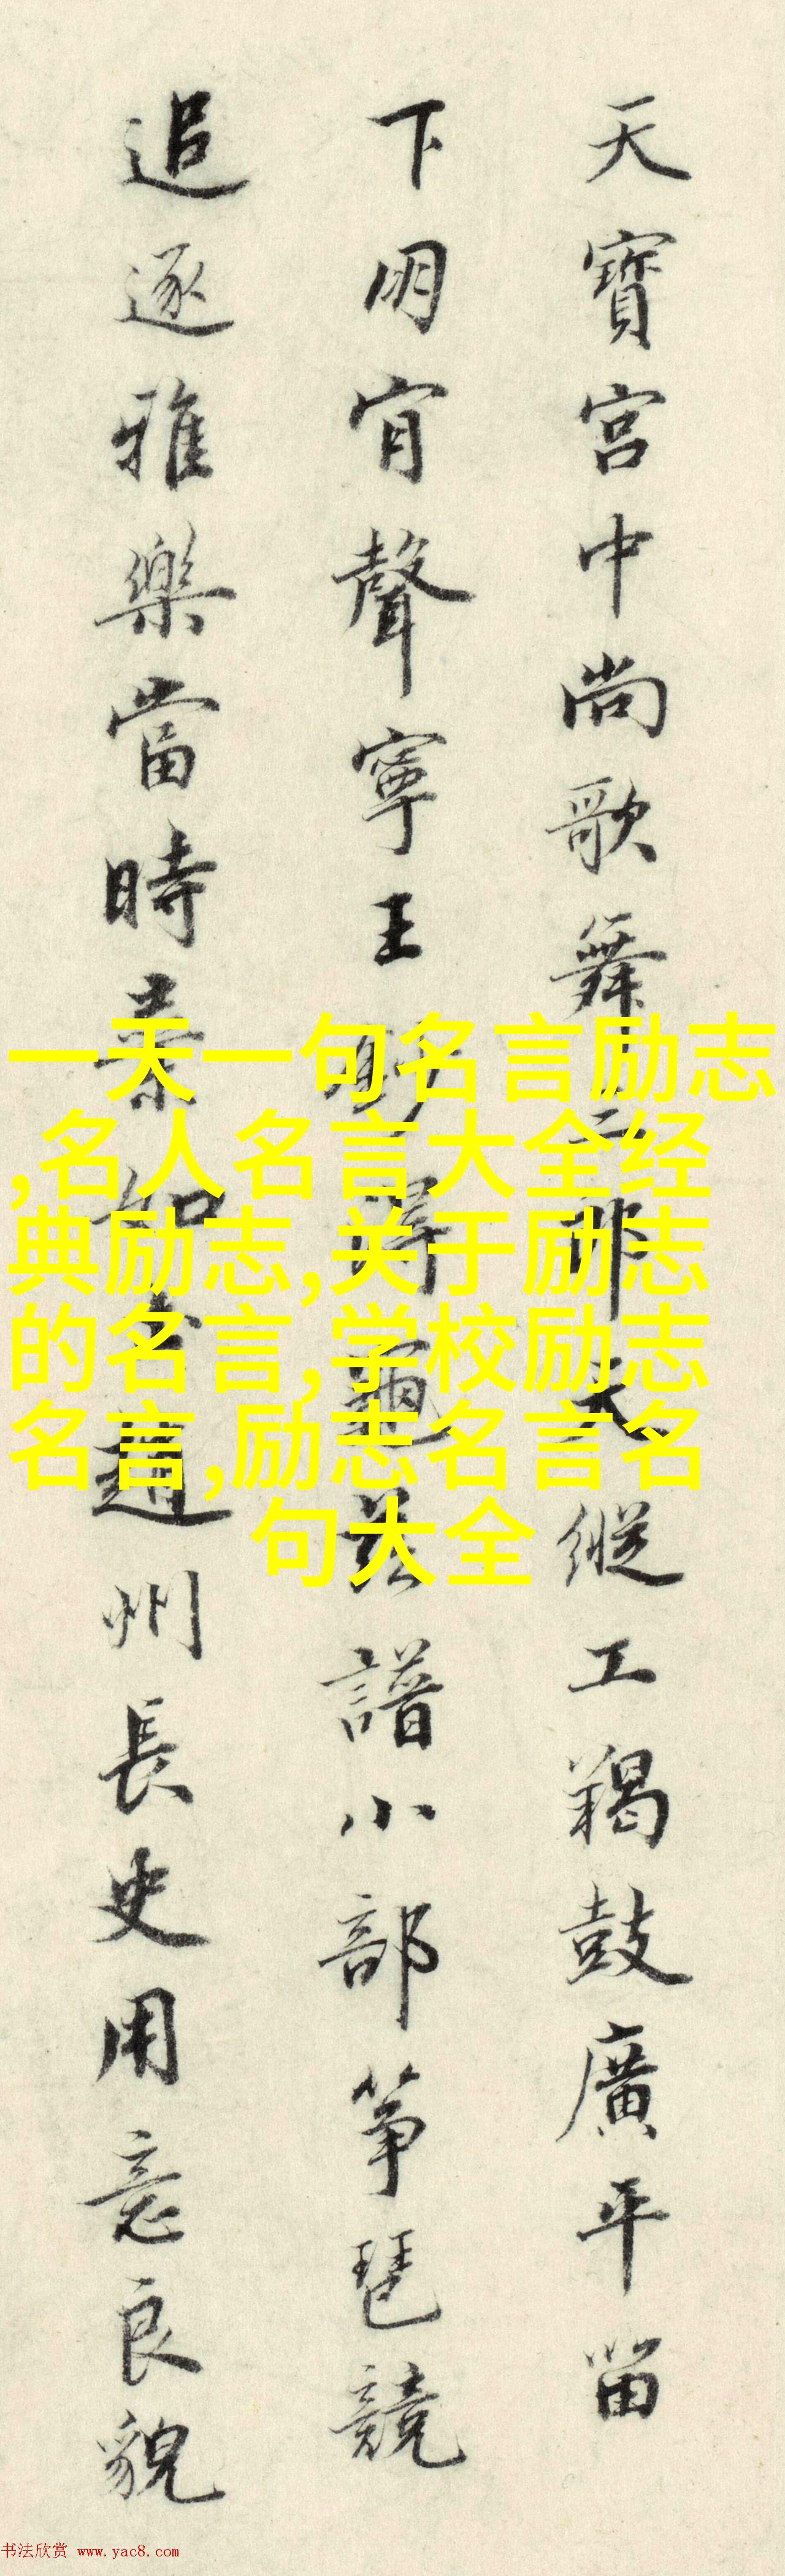 天寶宮中尚歌舞三郎天縱工羯鼓廣平留
下朋肎聲寧王得龜茲譜小部箏琶競
追逐雅樂當時棄如趙州長史用意良貌
一天一句名言励志
,名人名言大全经
典励志,关于励志
的名言,学校励志
名言,励志名言名
句大全
书法欣赏 www.yac8.com